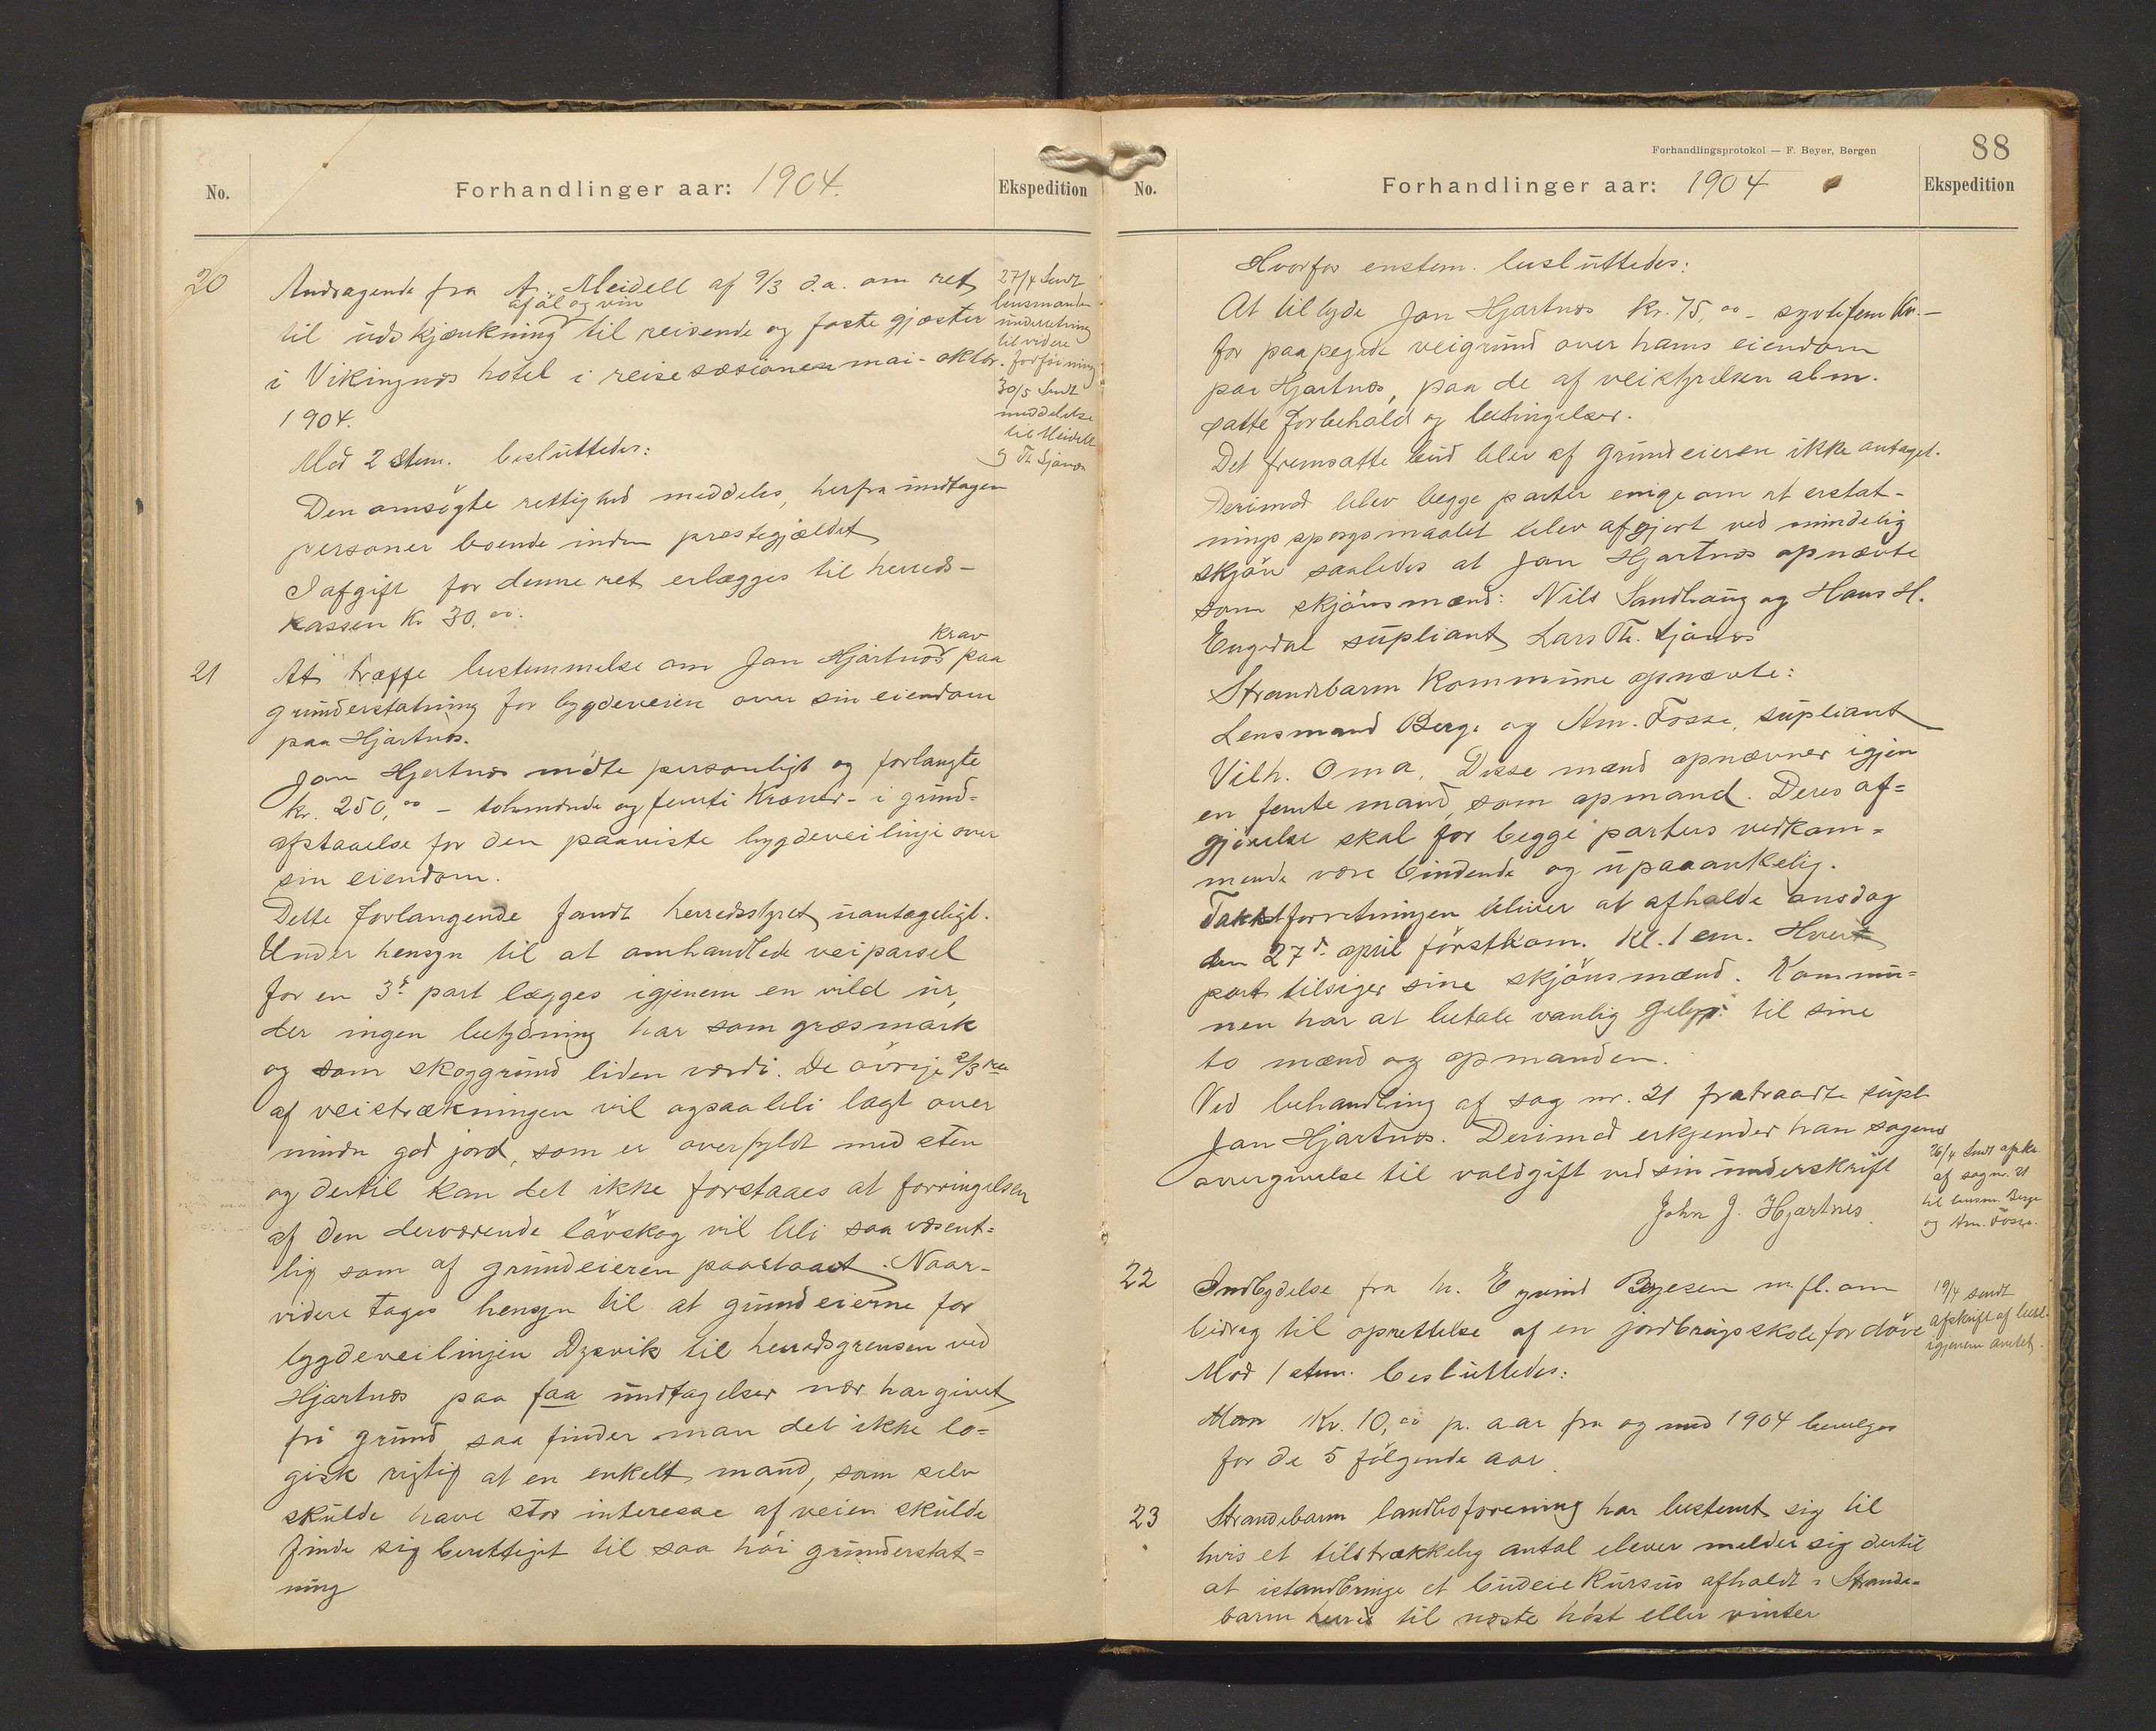 No.
Forhandlinger aar: 1904.
Ekspedition
20
Andragende fra A. Meidell af 9/3 d.a. om ret
af öl og vin
til udskjænkning til reisende og faste gjæster
i Vikingnæs hotel i reisesæsionen mai-oktbr.
1904.
Mod 2 stem. besluttedes:
Den omsögte rettighed meddeles, herfra undtagen
personer boende inden præstegjældet
I afgift for denne ret erlægges til herreds-
kassen Kr 30,00.
27/4 Sendt
lensmanden
underretning
til videre
forföining
30/5 Sendt
meddelelse
til Meidell
og Th. Sjönæs
21
At træffe bestemmelse om Jon Hjartnæs krav paa
grunderstatning for bygdeveien over sin eiendom
paa Hjartnæs.
Jon Hjartnæs mödte personligt og forlangte
kr. 250,00 – tohundrede og femti Kroner – i grund=
afstaaelse for den paaviste bygdeveilinje over
sin eiendom.
Dette forlangende fandt herredsstyret uantageligt.
Under hensyn til at omhandlede veiparsel
for en 3de part lægges igjenem en vild ur,
der ingen betydning har som græsmark
og som skoggrund liden værdi. De övrige 2/3 dele
af veistrækningen vil ogsaa bli lagt over
mindre god jord, som er overfyldt med sten
og dertil kan det ikke forstaaes at forringelsen
af den derværende lövskog vil bli saa væsent=
lig som af grundeieren paastaaet. Naar-
videre tages hensyn til at grundeierne for
bygdeveilinjen Dysvik til herredsgrensen ved
Hjartnæs paa faa undtagelser nær har givet
fri grund, saa finder man det ikke lo=
gisk rigtig at en enkelt mand, som selv
skulde have stor interesse af veien skulde
finde sig berettiget til saa höi grunderstat=
ning
Forhandlingsprotokol — F. Beyer, Bergen
88
No.
Forhandlinger aar: 1904
Ekspedition
Hvorfor enstem. besluttedes:
At tilbyde Jon Hjartnæs Kr. 75,00 – syvtifem Kr. –
for paapegede veigrund over hans eiendom
paa Hjartnæs, paa de af veistyrelsen alm.
satte forbehold og betingelser.
Det fremsatte bud blev af grundeieren ikke antaget.
Derimod blev begge parter enige om at erstat-
ningsspörgsmaalet blev afgjort ved mindelig
skjön saaledes at Jon Hjartnæs opnævnte
som skjönsmænd: Nils Sandhaug og Hans H.
Engedal supliant Lars Th. Sjönæs
Strandebarm Kommune opnævnte:
Lensmand Berge og Am. Fosse, supliant
Vilh. Oma. Disse mænd opnævner igjen
en femte mand, som opmand. Deres af=
gjörelse skal for begge parters vedkom=
mende være bindende og upaaankelig.
Takstforretningen bliver at afholde onsdag
den 27de april förstkom. Kl. 1 em. Hver
part tilsiger sine skjönsmænd. Kommu=
nen har at betale vanlig til sine
to mænd og opmanden.
Ved behandling af sag nr. 21 fratraadte supl.
Jon Hjartnæs. Derimod erkjender han sagens
overgivelse til voldgift ved sin underskrift
John J. Hjartnes.
26/4 Sendt afskr.
af sag nr. 21
til lensm. Berge
og Am. Fosse.
22
Indbydelse fra h. Eyvind Boyesen m.fl. om
bidrag til oprettelse af en jordbrugsskole for döve
Mod 1 stem. besluttedes:
Kr. 10,00 pr. aar fra og med 1904 bevilges
for de 5 fölgende aar.
19/4 sendt
afskrift af besl.
igjenem amtet.
23
Strandebarm landboforening har bestemt sig til
hvis et tilstrækkelig antal elever melder sig dertil
at istandbringe et budeiekursus afholdt i Strande-
barm til næste höst eller vinter